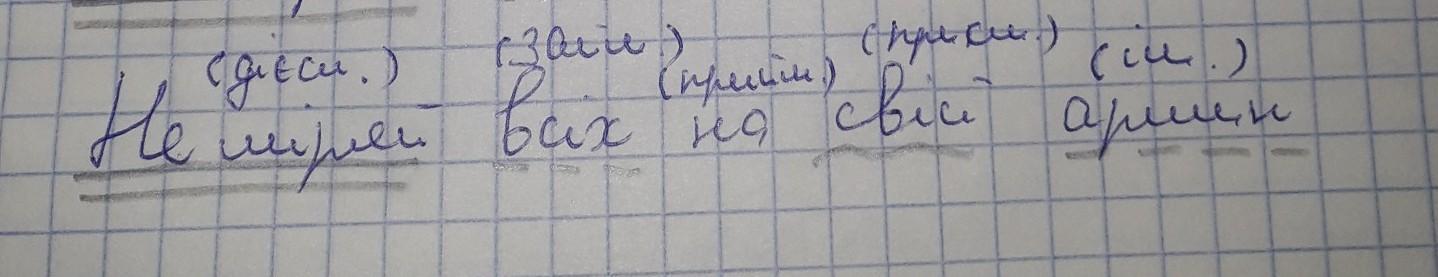 (дієсл.) (займ.) (прийм.) (прикм.) (ім.)
Не міряй всіх на свій аршин